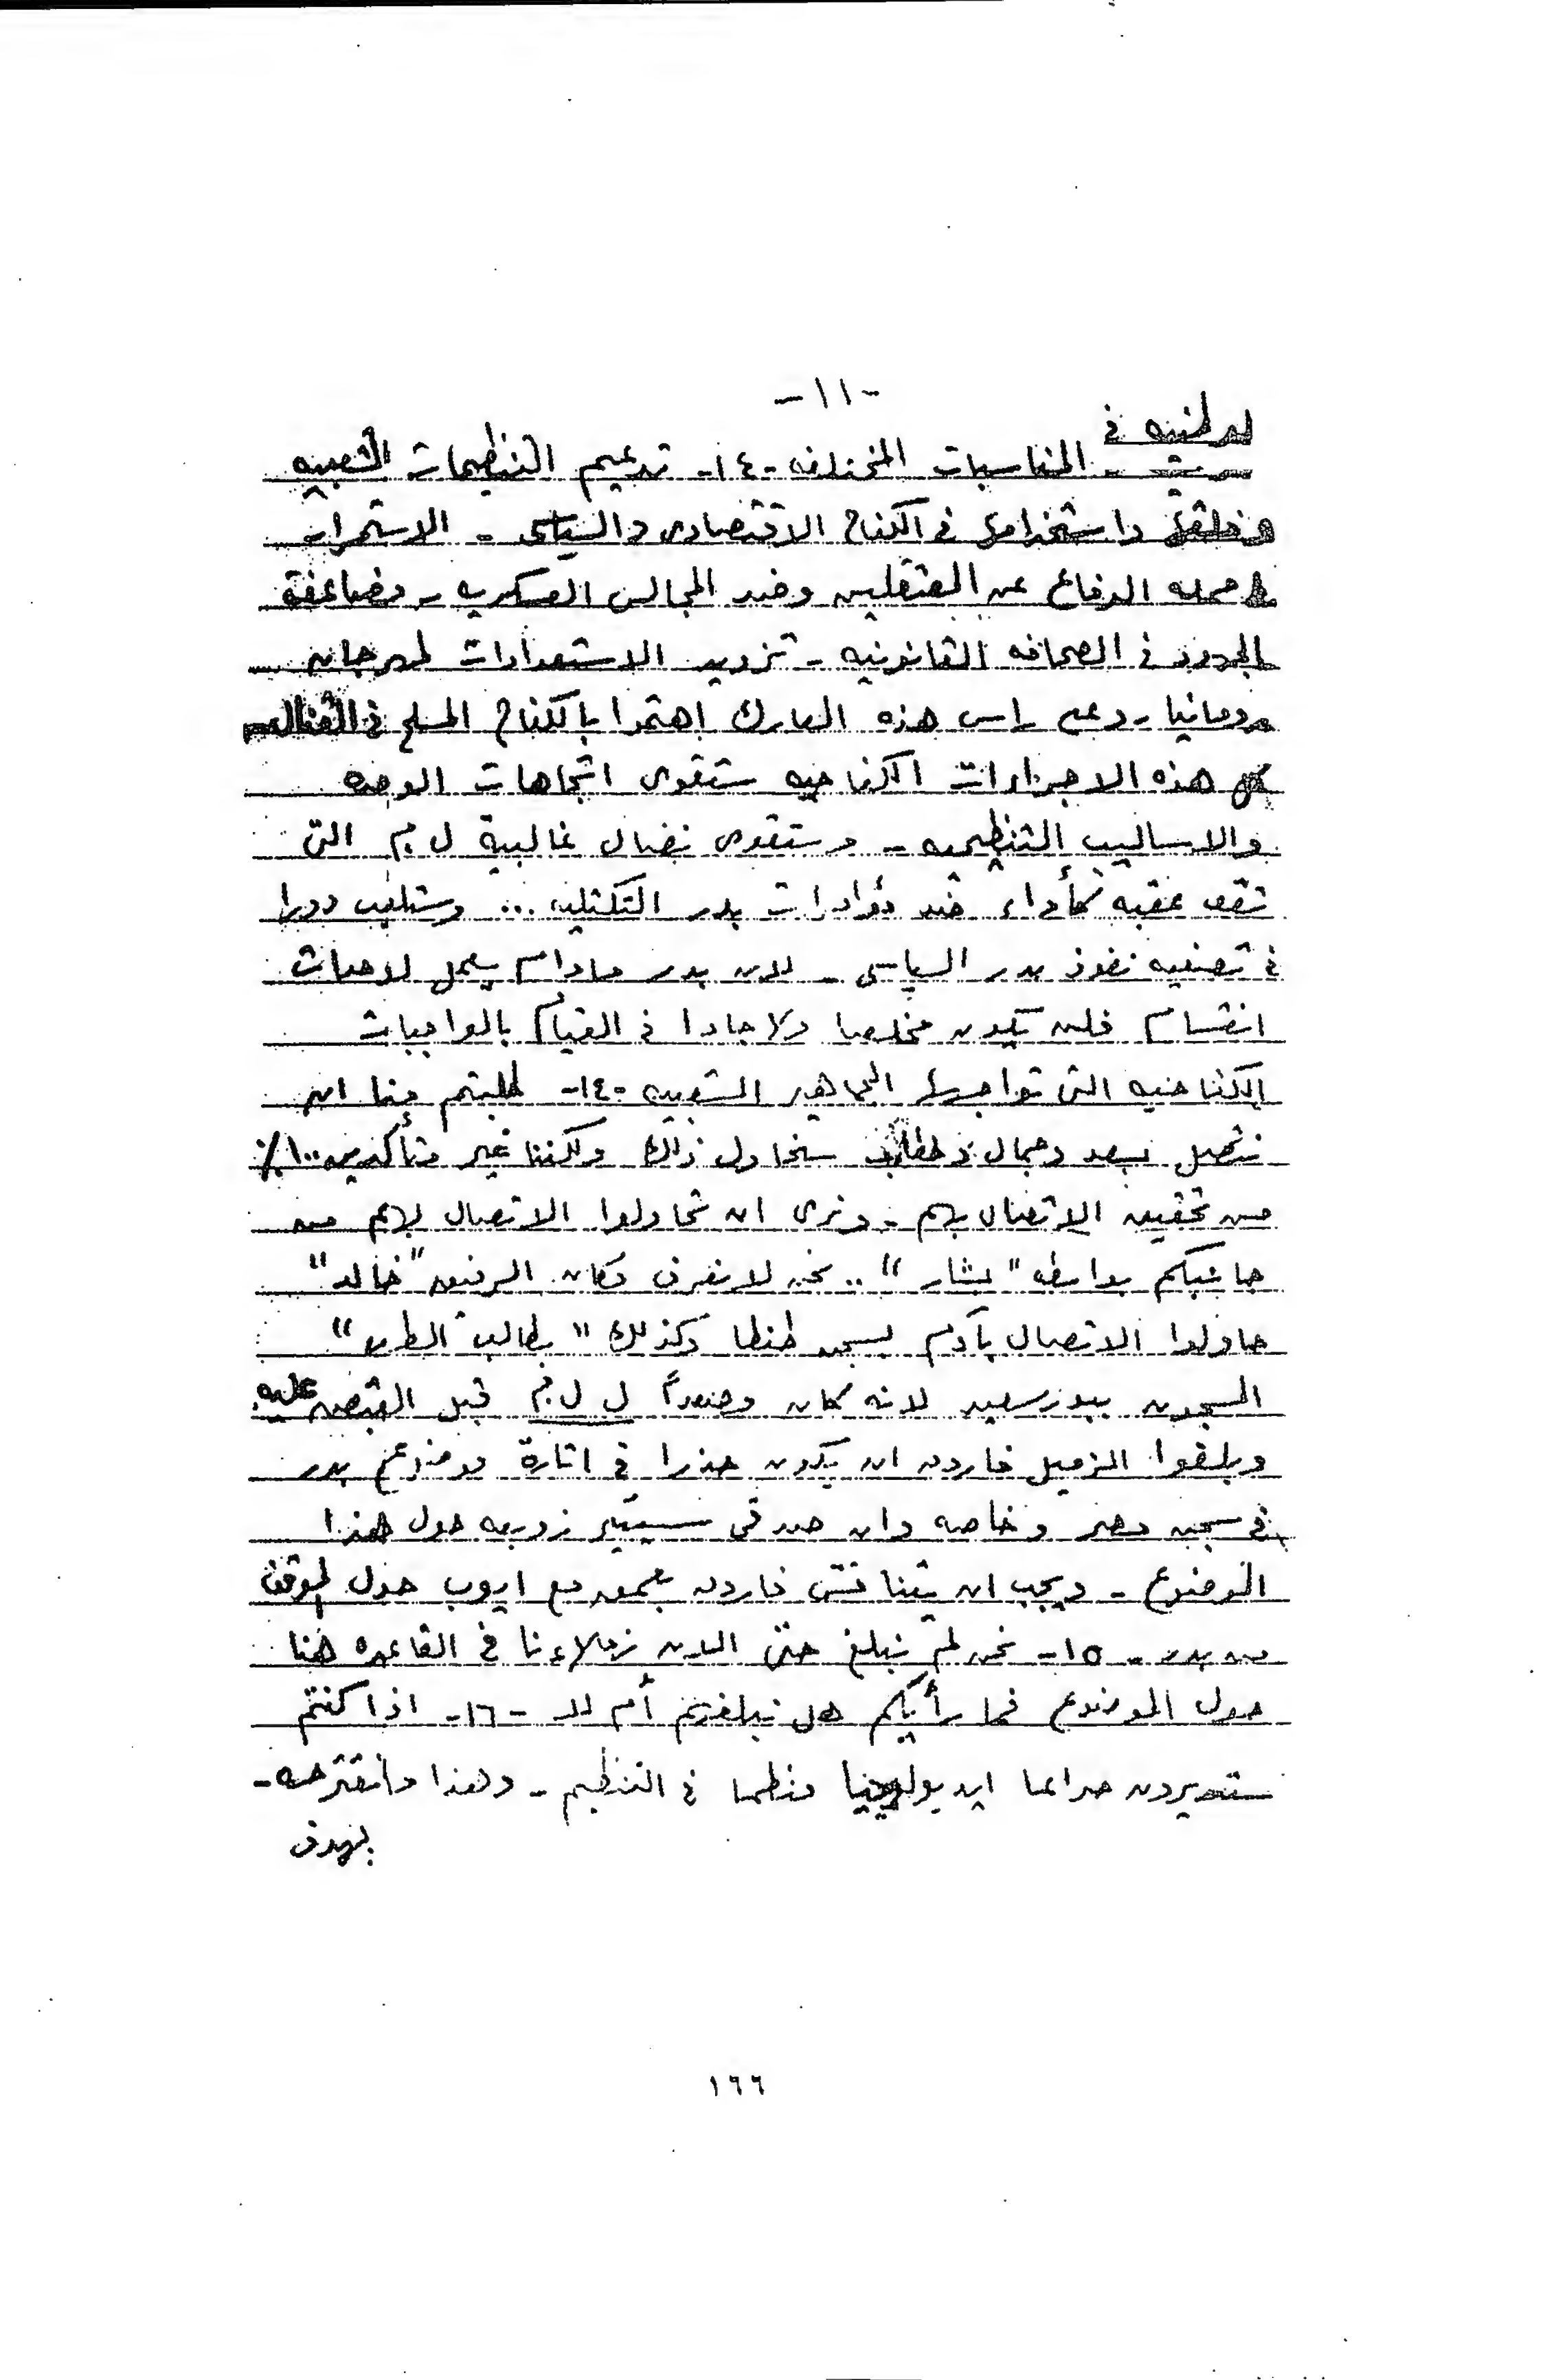 -١١-
الوطنيه في
المناسبات المختلفه -١٤- تدعيم التنظيمات الشعبيه
وخلقها واستخدامها في الكفاح الاقتصادى والسياسى - الاستمرار
حمله الدفاع عن المعتقلين وضد المجالس العسكريه - مضاعفة
الجهود في الصحافه القانونيه - تزويد الاستعدادات لمهرجان
رومانيا - وعلى راس هذه المعارك اهتموا بالكفاح المسلح في القنال
كل هذه الاجراءات الكفاحيه ستقوى اتجاهات الوحده
والاساليب التنظيميه - وستقوى نضال غالبية ل م التى
تقف عقبه كأداء ضد مؤامرات بدر التكتليه ... وستلعب دورا
في تصفيه نفوذ بدر السياسى - لان بدر مادام يعمل لاحداث
انقسام فلن يكون مخلصا ولا جادا في القيام بالواجبات
الكفاحيه التى تواجهها الجماهير الشعبيه -١٤- طلبتم منا ان
نتصل بسعد وجمال وخطاب سنحاول ذلك ولكننا غير متأكدين ١٠٠٪
من تحقيق الاتصال بهم - ونرى ان تحاولوا الاتصال بهم من
جانبكم بواسطه "بشار" .. نحن لا نعرف مكان الرفيق "خالد"
حاولوا الاتصال بآدم بسجن طنطا وكذلك "بطالب الطب"
المسجون ببورسعيد لانه كان مصعداً ل ل م قبل القبض عليه
وبلغوا الزميل فاردن ان يكون حذرا في اثارة موضوع بدر
في سجن مصر وخاصه وان صدقى سيثير زوبعه حول هذا
الموضوع - ويجب ان يتناقش فاردن بعمق مع ايوب حول الموقف
من بدر - ١٥- نحن لم نبلغ حتى الان زملاءنا في القاعده هنا
حول الموضوع فما رأيكم هل نبلغهم أم لا -١٦- اذا كنتم
ستديرون صراعا ايديولوجيا منظما في التنظيم - وهذا ما نقترحه -
بهدف
١٦٦